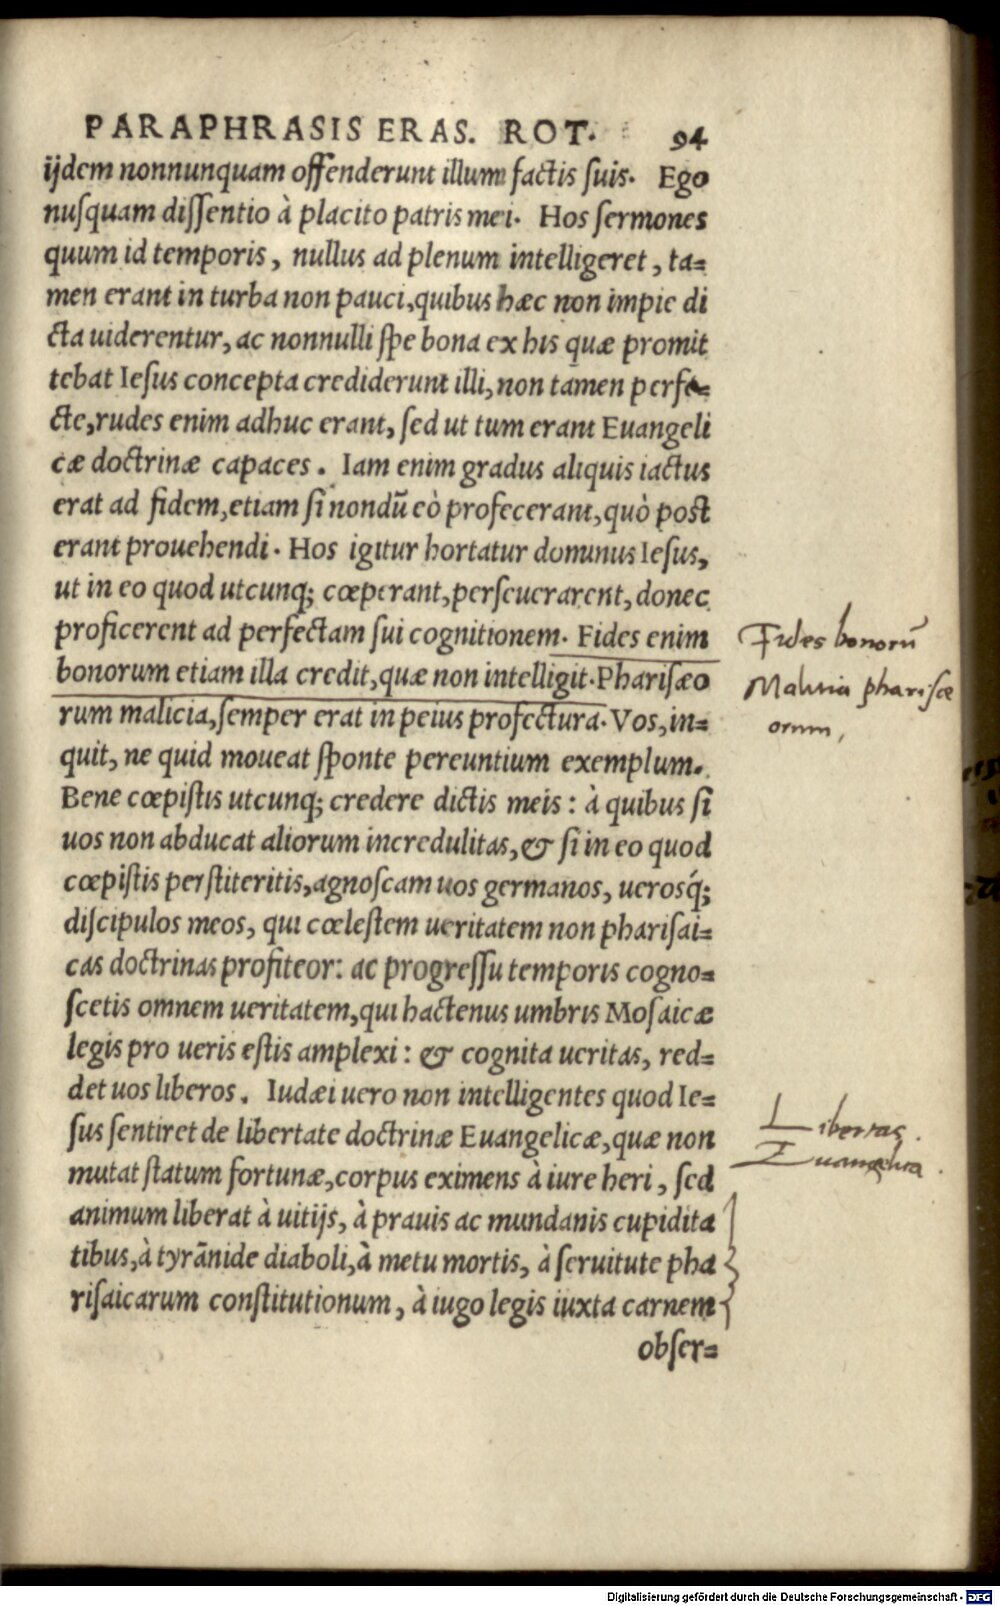 PARAPHRASIS ERAS. ROT. 94
ijdem nonnunquam offenderunt illum factis suis. Ego
nusquam dissentio à placito patris mei. Hos sermones
quum id temporis, nullus ad plenum intelligeret, ta=
men erant in turba non pauci, quibus hæc non impie di
cta uiderentur, ac nonnulli spe bona ex his quæ promit
tebat Iesus concepta crediderunt illi, non tamen perfe=
cte, rudes enim adhuc erant, sed ut tum erant Euangeli
cæ doctrinæ capaces. Iam enim gradus aliquis iactus
erat ad fidem, etiam si nondū eò profecerant, quò post
erant prouehendi. Hos igitur hortatur dominus Iesus,
ut in eo quod utcunq; cœperant, perseuerarent, donec
proficerent ad perfectam sui cognitionem. Fides enim
bonorum etiam illa credit, quæ non intelligit. Pharisæo
rum malicia, semper erat in peius profectura. Vos, in=
quit, ne quid moueat sponte pereuntium exemplum.
Bene cœpistis utcunq; credere dictis meis: à quibus si
uos non abducat aliorum incredulitas, & si in eo quod
cœpistis perstiteritis, agnoscam uos germanos, uerosq́;
discipulos meos, qui cœlestem ueritatem non pharisai=
cas doctrinas profiteor: ac progressu temporis cogno=
scetis omnem ueritatem, qui hactenus umbris Mosaicæ
legis pro ueris estis amplexi: & cognita ueritas, red=
det uos liberos. Iudæi uero non intelligentes quod Ie=
sus sentiret de libertate doctrinæ Euangelicæ, quæ non
mutat statum fortunæ, corpus eximens à iure heri, sed
animum liberat à uitijs, à prauis ac mundanis cupidita
tibus, à tyrānide diaboli, à metu mortis, à seruitute pha
risaicarum constitutionum, à iugo legis iuxta carnem
obser=
Fides bonorū
Malitia pharisæ
orum,
Libertas
Euangelica.
Digitalisierung gefördert durch die Deutsche Forschungsgemeinschaft - DFG